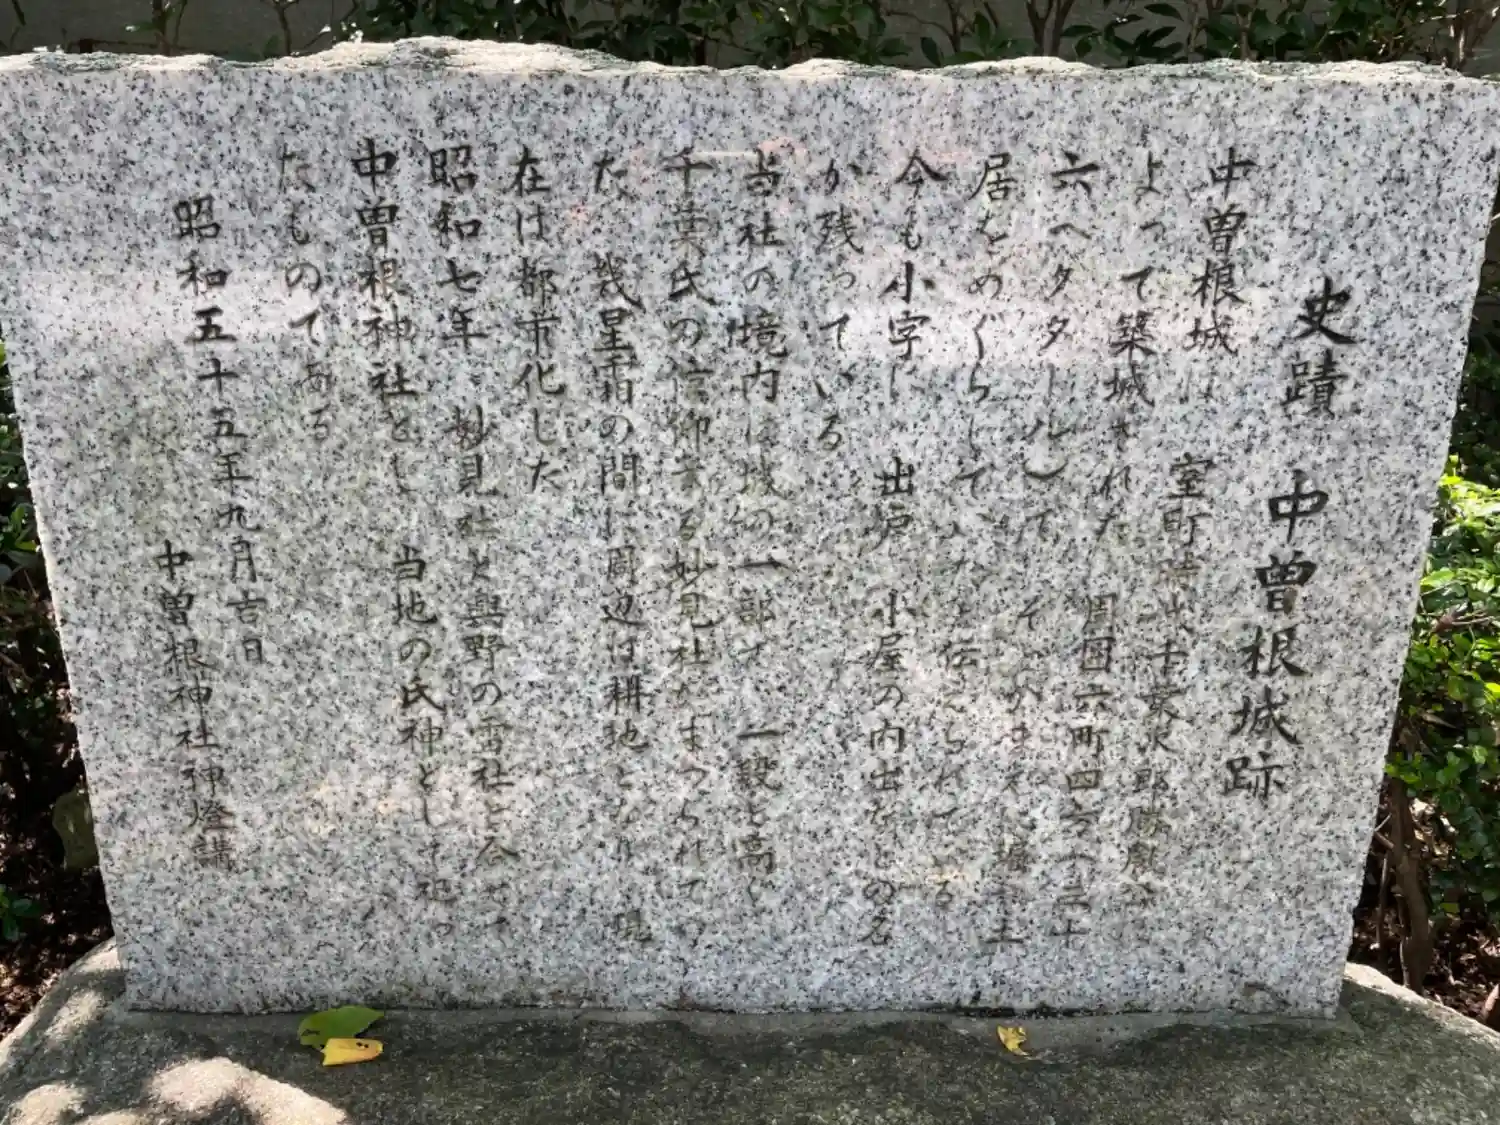 史蹟 中曽根城跡
中曽根城は 室町時代千葉次郎勝胤に
よって築城された 周囲六町四方(三十
六ヘクタール)で そとがまえに堀と土
居をめぐらしていたと伝えられている
今も小字に 出戸 小屋の内出などの名
が残っている
当社の境内は城の一部で 一段と高く
千葉氏の信仰する妙見社がまつられて
た 幾星霜の間に周辺は耕地となり 現
在は都市化した
昭和七年 妙見社と與野の雷社と合せ
中曽根神社とし 当地の氏神として祀っ
たものである
昭和五十五年九月吉日
中曽根神社神燈講